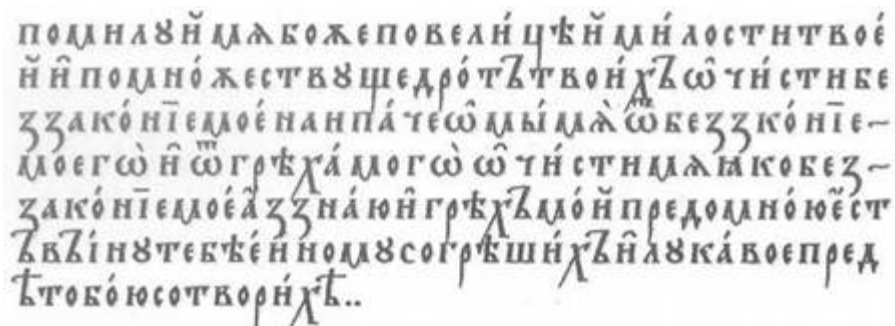 помилꙋй мѧ боже по вели́цѣй ми́лости твоé
й и҆̑ по мно́жествꙋ щедро́тъ твои́хъ ѡ҆̑чи́сти бе
ззако́нїе моé наипа́че ѡ҆̑мы́ мѧ̀ ѿ безз̾ко́нїе-
моегѡ̀ и҆̑ ѿ грѣха́ могѡ̀ ѡ҆̑чи́сти мѧ ꙗко без-
зако́нїе моé а҆̑зз на́ю и҆̑ грѣхъ мо́й предомно́ю е҆̑ст
ъ въі́нꙋ тебѣ е҆ди́номꙋ согрѣши́хъ и҆̑ лꙋка́вое пред
ѣ тобо́ю сотвори́хѣ..